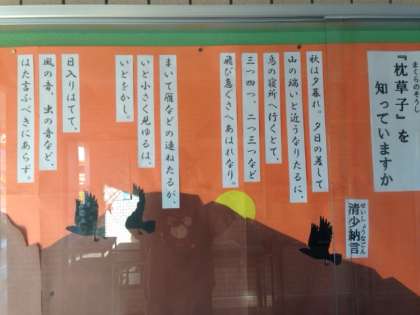 まくらのそうし
『枕草子』を
知っていますか
せいしょうなごん
清少納言
秋は夕暮れ。夕日の差して
山の端いと近うなりたるに、
烏の寝所へ行くとて、
三つ四つ、二つ三つなど
飛び急ぐさへあはれなり。
まいて雁などの連ねたるが、
いと小さく見ゆるは、
いとをかし。
日入りはてて、
風の音、虫の音など、
はた言ふべきにあらず。